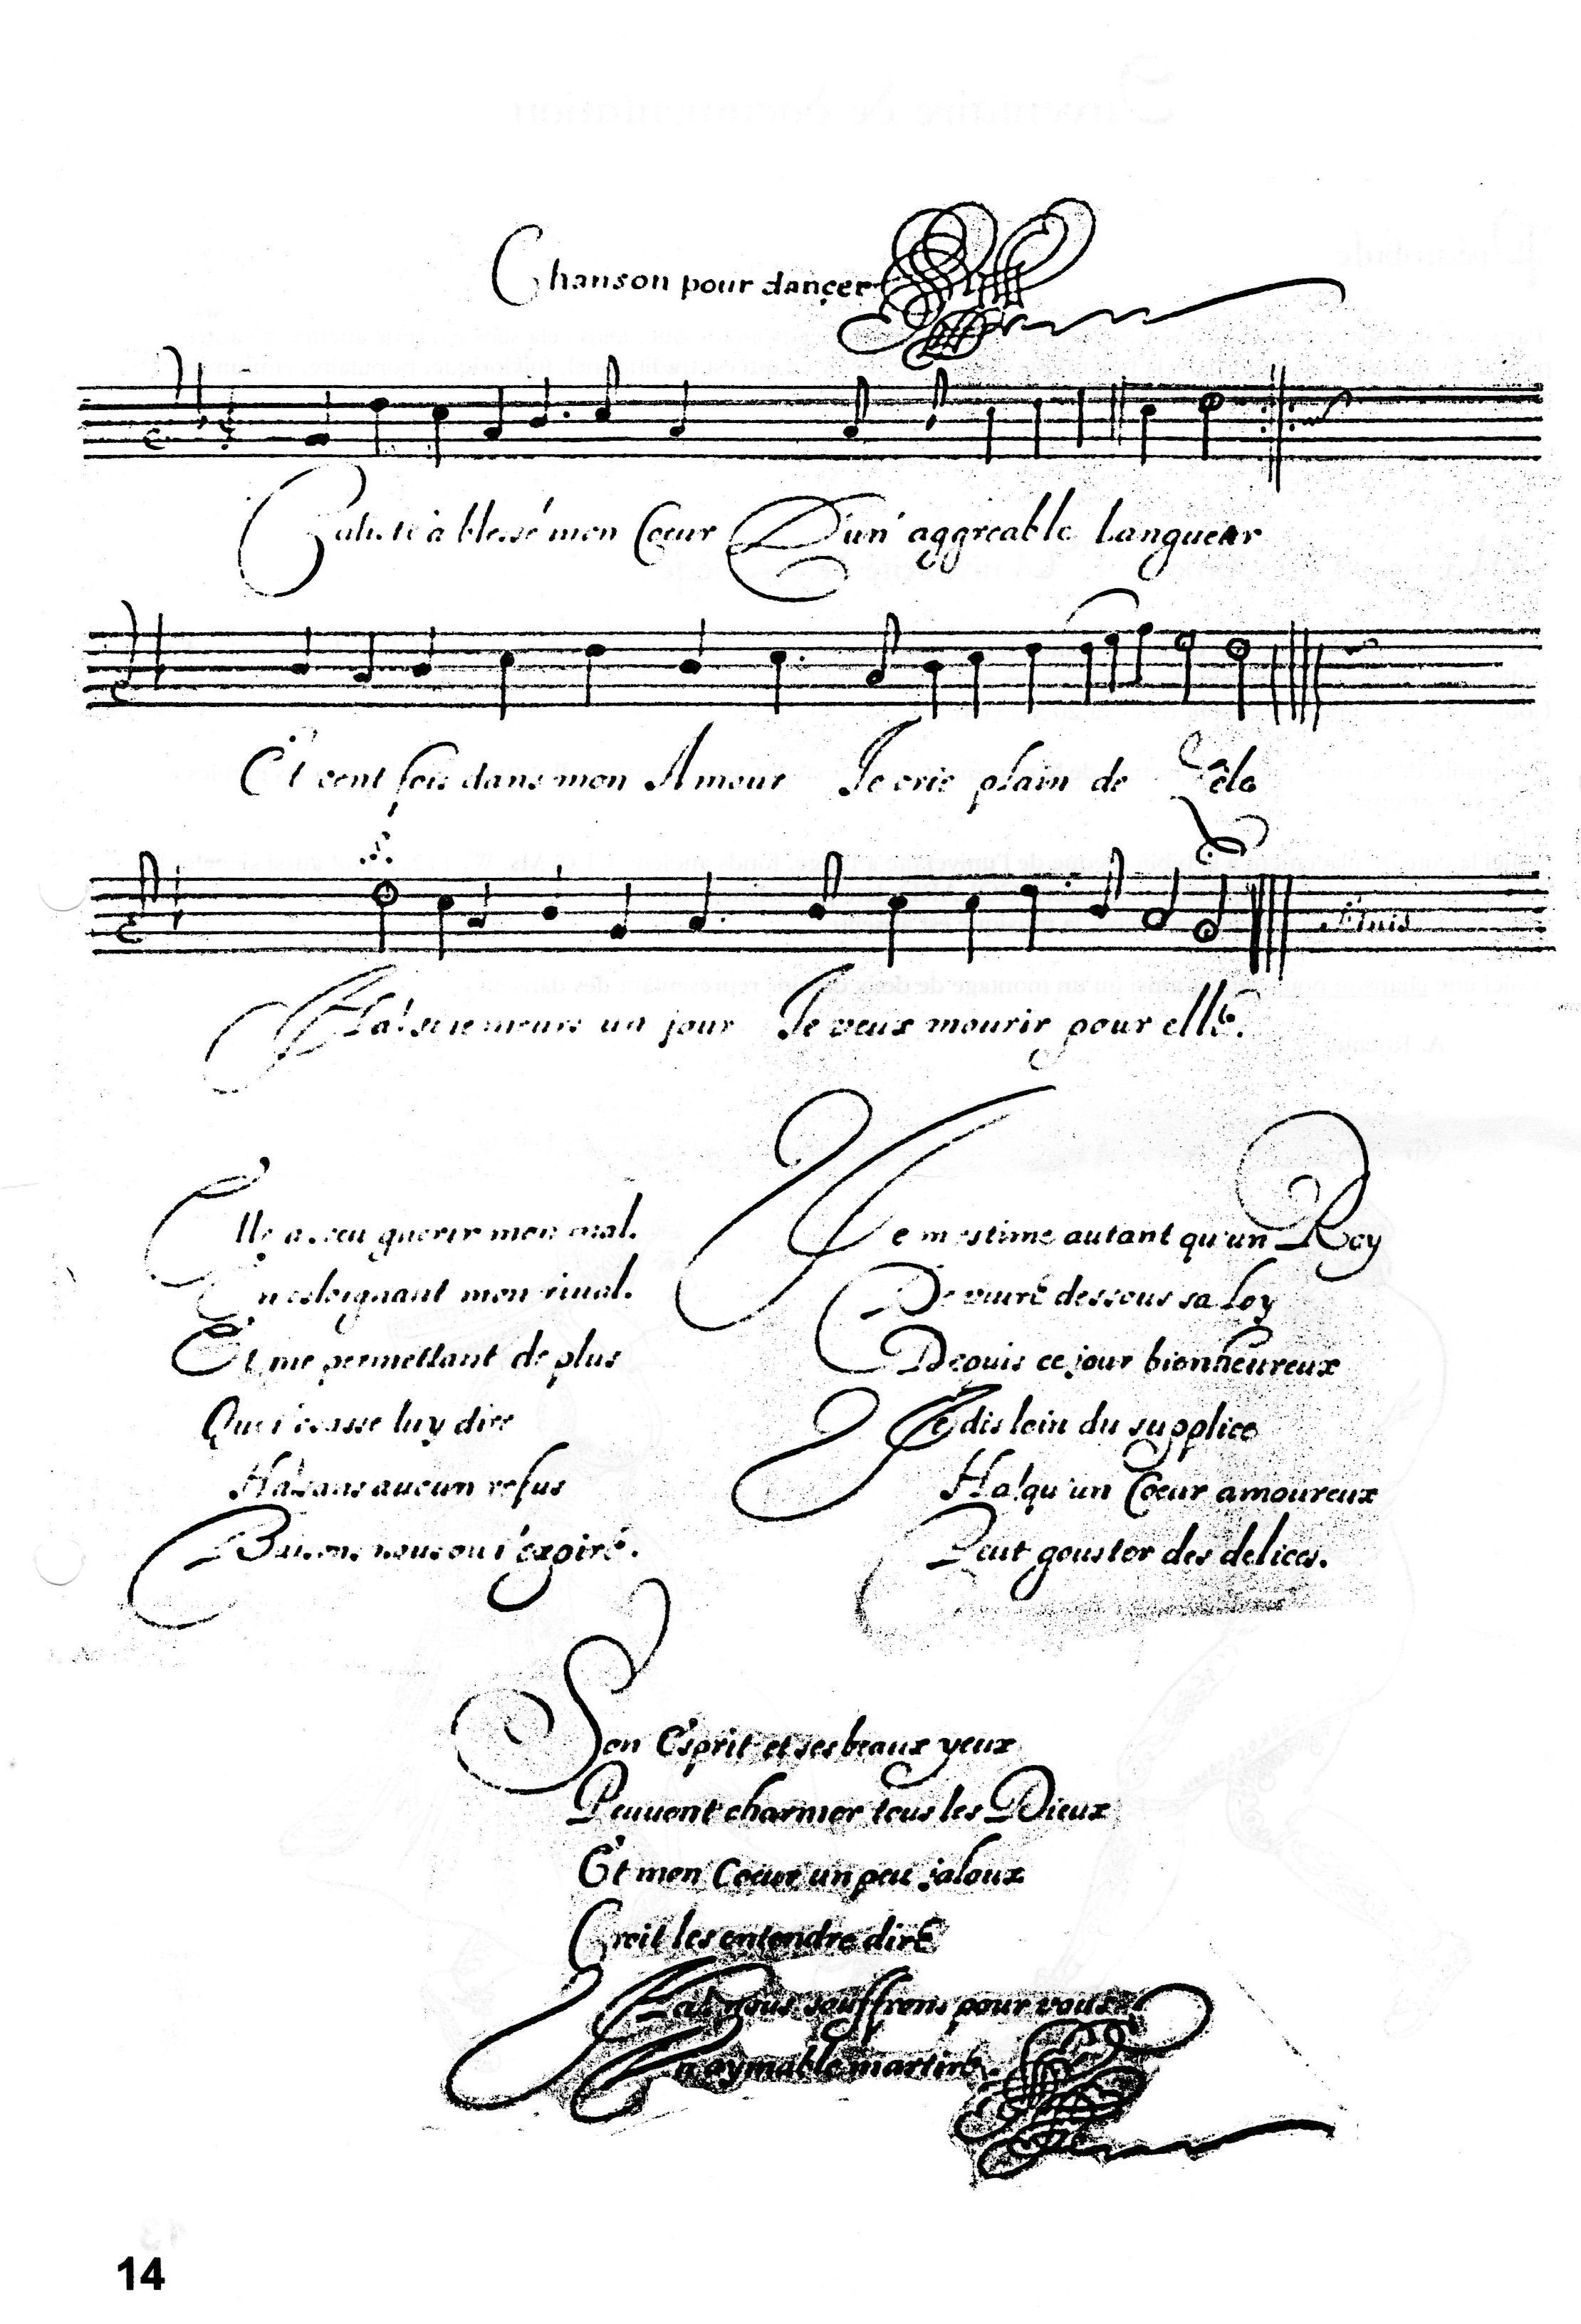 Chanson pour dançer
Caliste à blessé mon Coeur D'un' aggreable Langueur
Et cent fois dans mon Amour Je crie plain de Zêle
Ha! si je meurs un jour Je veux mourir pour elle.
Elle a sceu guerir mon mal.
En esloignant mon rival.
Et me permettant de plus
Que j'osasse luy dire
Ha! sans aucun refus
Baisons nous ou j'expire.
Je m'estime autant qu'un Roy
De vivre dessous sa Loy
Depuis ce jour bienheureux
Je dis loin du supplice
Ha! qu'un Coeur amoureux
Peut gouster des delices.
Son Esprit et ses beaux yeux
Peuvent charmer tous les Dieux
Et mon Coeur un peu jaloux
Croit les entendre dire
Ha! nous souffrons pour vous
Un aymable martire.
14